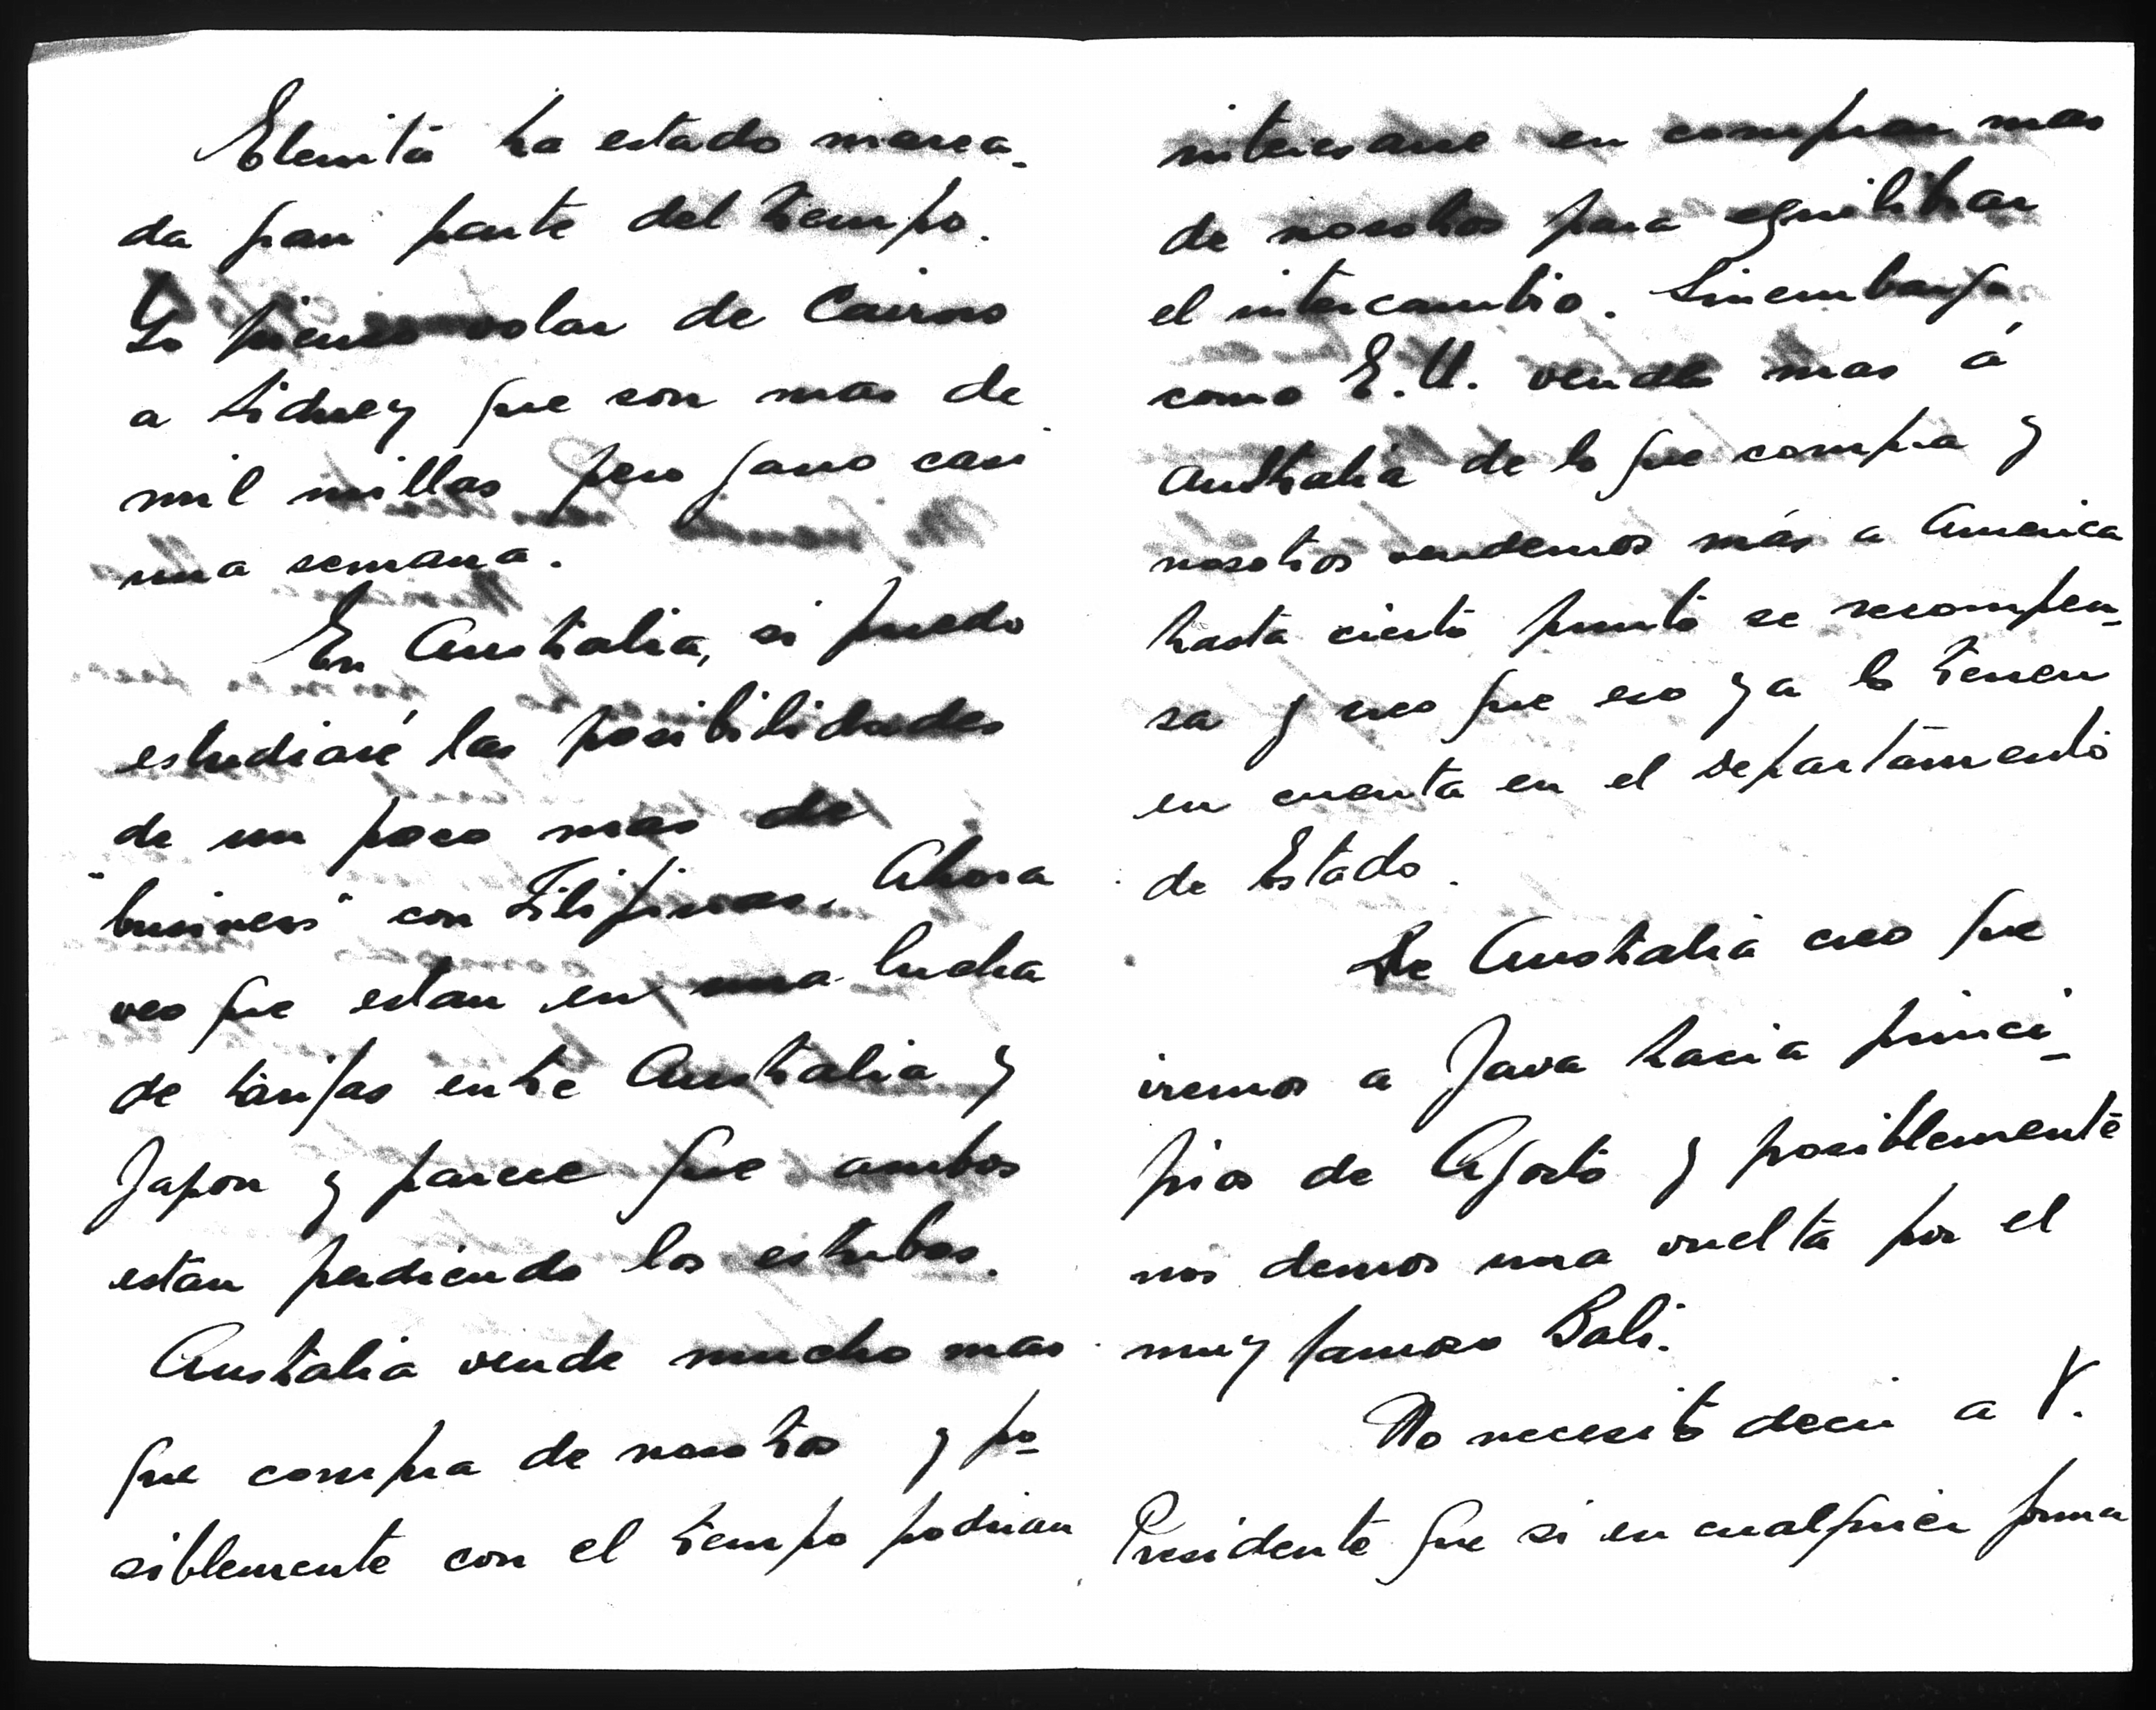 Elenita ha estado marea-
da gran parte del tiempo.
Yo pienso volar de Cairns
a Sidney que son mas de
mil millas pero gano casi
una semana.
En Australia, si puedo
estudiaré las posibilidades
de un poco mas de
"business" con Filipinas. Ahora
veo que estan en una lucha
de tarifas entre Australia y
Japon y parece que ambos
estan perdiendo los estribos.
Australia vende mucho mas
que compra de nosotros y po-
siblemente con el tiempo podrian
interesarse en comprar mas
de nosotros para equilibrar
el intercambio. Sinembargo,
como E.U. vende mas á
Australia de lo que compra y
nosotros vendemos más a America
hasta cierto punto se recompen-
sa y creo que eso ya lo tienen
en cuenta en el Departamento
de Estado.
De Australia creo que
iremos a Java hacia princi-
pios de Agosto y posiblemente
nos demos una vuelta por el
muy famoso Bali.
No necesito decir a V.
Presidente que si en cualquier forma